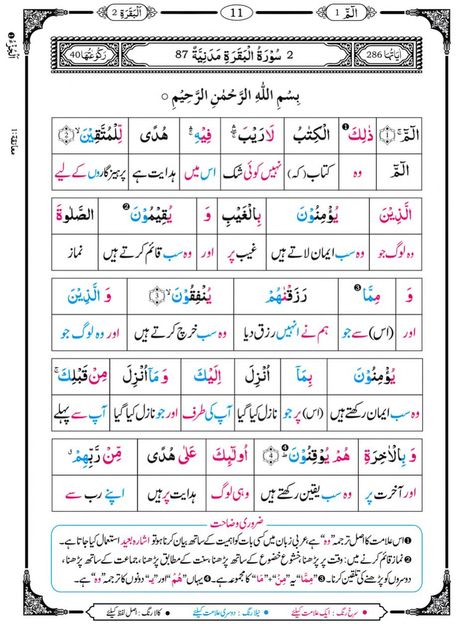 الٓمّٓ 1
11
اَلْبَقَرَةِ 2
اٰیَاتُهَا 286
2 سُوْرَةُ الْبَقَرَةِ مَدَنِيَّةٌ 87
رُكُوْعَاتُهَا 40
بِسْمِ اللّٰهِ الرَّحْمٰنِ الرَّحِيْمِ
الٓمّٓ ﴿1﴾ ذٰلِكَ الْكِتٰبُ لَا رَيْبَ فِيْهِ هُدًى لِّلْمُتَّقِيْنَ ﴿2﴾
الٓمّٓ وہ کتاب (کہ) نہیں کوئی شک اس میں ہدایت ہے پرہیزگاروں کے لیے
الَّذِيْنَ يُؤْمِنُوْنَ بِالْغَيْبِ وَ يُقِيْمُوْنَ الصَّلٰوةَ
وہ لوگ جو وہ سب ایمان لاتے ہیں غیب پر اور وہ سب قائم کرتے ہیں نماز
وَ مِمَّا رَزَقْنٰهُمْ يُنْفِقُوْنَ ﴿3﴾ وَ الَّذِيْنَ
اور (اس) سے جو ہم نے انہیں رزق دیا وہ سب خرچ کرتے ہیں اور وہ لوگ جو
يُؤْمِنُوْنَ بِمَا اُنْزِلَ اِلَيْكَ وَمَا اُنْزِلَ مِنْ قَبْلِكَ
وہ سب ایمان رکھتے ہیں (اس) پر جو نازل کیا گیا آپ کی طرف اور جو نازل کیا گیا آپ سے پہلے
وَ بِالْاٰخِرَةِ هُمْ يُوْقِنُوْنَ ﴿4﴾ اُولٰٓئِكَ عَلٰى هُدًى مِّنْ رَّبِّهِمْ
اور آخرت پر وہ سب یقین رکھتے ہیں وہی لوگ ہدایت پر ہیں اپنے رب سے
ضروری وضاحت
❶ اس علامت کا اصل ترجمہ "وہ" ہے، عربی زبان میں کسی بات کو اہمیت کے ساتھ بیان کرنا ہو تو اشارہ بعید استعمال کیا جاتا ہے۔
❷ نماز قائم کرنے میں: وقت پر پڑھنا، خشوع خضوع کے ساتھ پڑھنا، سنت کے مطابق پڑھنا، جماعت کے ساتھ پڑھنا،
دوسروں کو پڑھنے کی تلقین کرنا۔ ❸ "مِمَّا" یہ "مِنْ، مَا" کا مجموعہ ہے۔ ❹ یہاں "هُمْ" اور "يـ" دونوں کا ترجمہ "وہ" ہے۔
سرخ رنگ: ایک علامت کیلئے نیلا رنگ: دوسری علامت کیلئے کالا رنگ: اصل لفظ کیلئے